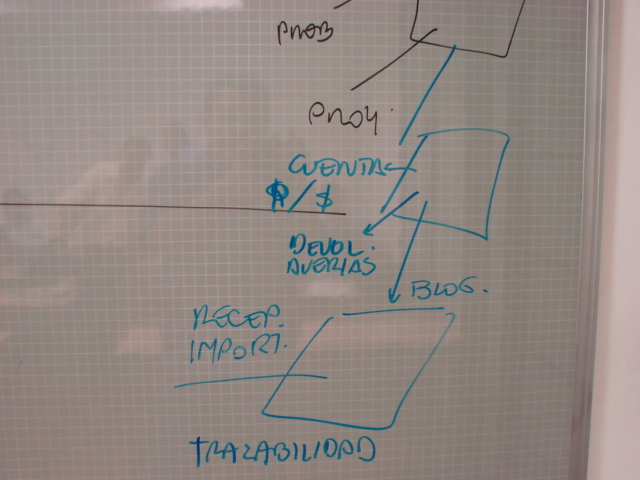 PROB
PROY.
CUENTA
/ $
DEVOL.
AVERIAS
BLOG.
RECEP.
IMPORT.
TRAZABILIDAD